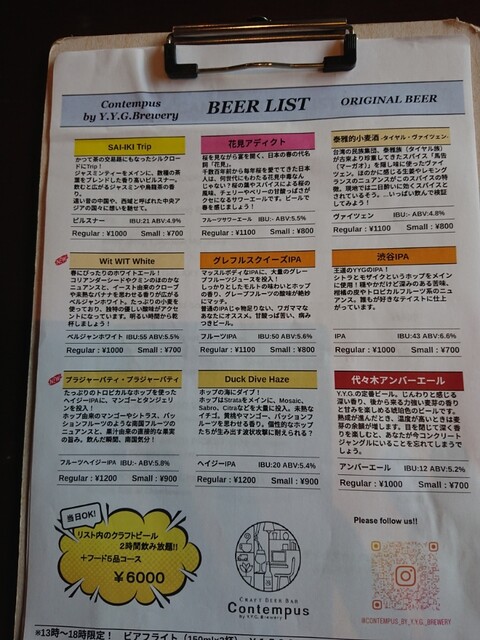 Contempus
by Y.Y.G.Brewery
BEER LIST
ORIGINAL BEER
SAI-IKI Trip
かつて茶の交易路にもなったシルクロードにTrip！
ジャスミンティーをメインに、数種の茶葉をブレンドした香り高いピルスナー。
飲むと広がるジャスミンや烏龍茶の香り。
遠い昔の中国や、西域と呼ばれた中央アジアの国々に想いを馳せて。
ピルスナー IBU:21 ABV:4.9%
Regular : ¥1000 Small : ¥700
花見アディクト
桜を見ながら宴を開く、日本の春の代名詞「花見」。
千数百年前から毎年桜を愛でてきた日本人は、何世代にもわたる花見中毒なんじゃない！？桜の葉やスパイスによる桜の風味、チェリーやベリーの甘酸っぱさがアクセントになるサワーエールです。ビールで春を感じましょう！
フルーツサワーエール IBU:- ABV:5.5%
Regular : ¥1100 Small : ¥800
泰雅的小麦酒 -タイヤル・ヴァイツェン-
台湾の民族集団、泰雅族（タイヤル族）が古来より珍重してきたスパイス「馬告（マーガオ）」を隠し味に使ったヴァイツェン。ほのかに感じる生姜やレモングラスのニュアンスがこのスパイスの特徴。現地では二日酔いに効くスパイスとされているそう。…いっぱい飲んで検証してみよう！
ヴァイツェン IBU:- ABV:4.8%
Regular : ¥1100 Small : ¥800
Wit WIT White
春にぴったりのホワイトエール！
コリアンダーシードやクミンのほのかなニュアンスと、イースト由来のクローブや未熟なバナナを思わせる香りが広がるベルジャンホワイト。たっぷりの小麦を使っており、独特の優しい酸味がアクセントになっています。明るい時間から乾杯しましょう！
ベルジャンホワイト IBU:55 ABV:5.5%
Regular : ¥1000 Small : ¥700
グレフルスクイーズIPA
マッスルボディなIPAに、大量のグレープフルーツジュースを投入！
しっかりとしたモルトの味わいとホップの香り、グレープフルーツの酸味が絶妙にマッチ。
普通のIPAじゃ物足りない、ワガママなあなたにオススメ。甘酸っぱ苦い、病みつきビール。
フルーツIPA IBU:50 ABV:5.6%
Regular : ¥1100 Small : ¥800
渋谷IPA
王道のYYGのIPA！
シトラとモザイクというホップをメインに使用！穏やかだけど深みのある苦味、柑橘の皮やトロピカルフルーツ系のニュアンス。誰もが好きなテイストに仕上がっています。
IPA IBU:43 ABV:6.6%
Regular : ¥1000 Small : ¥700
ブラジャーパティ・ブラジャーパティ
たっぷりのトロピカルなホップを使い、ヘイジーIPAに、マンゴーとタンジェリンを投入！
ホップ由来のマンゴーやシトラス、パッションフルーツのような南国フルーツのニュアンスと、果汁由来の直接的な果実の旨み。飲んだ瞬間、南国気分！
フルーツヘイジーIPA IBU:- ABV:5.8%
Regular : ¥1200 Small : ¥900
Duck Dive Haze
ホップの海にダイブ！
ホップはStrataをメインに、Mosaic、Sabro、Citraなどを大量に投入。未熟なイチゴ、黄桃やマンゴー、パッションフルーツを思わせる香り。個性的なホップたちが生み出す波状攻撃に耐えられる？
ヘイジーIPA IBU:20 ABV:5.4%
Regular : ¥1200 Small : ¥900
代々木アンバーエール
Y.Y.G.の定番ビール。じんわりと感じる深い香り、後から来る力強い麦芽の香りと甘みを楽しめる琥珀色のビールです。熟成が進んだとき、温度が高いときは麦芽の余韻が増します。目を閉じて深く香りを楽しむと、あなたが今コンクリートジャングルにいることを忘れてしまうでしょう。
アンバーエール IBU:12 ABV:5.2%
Regular : ¥1000 Small : ¥700
当日OK!
リスト内のクラフトビール
2時間飲み放題!!
+フード5品コース
¥6000
CRAFT BEER BAR
Contempus
by Y.Y.G. Brewery
Please follow us!!
@CONTEMPUS_BY_Y.G._BREWERY
※13時〜18時限定！ ビアフライト（150ml×3杯）